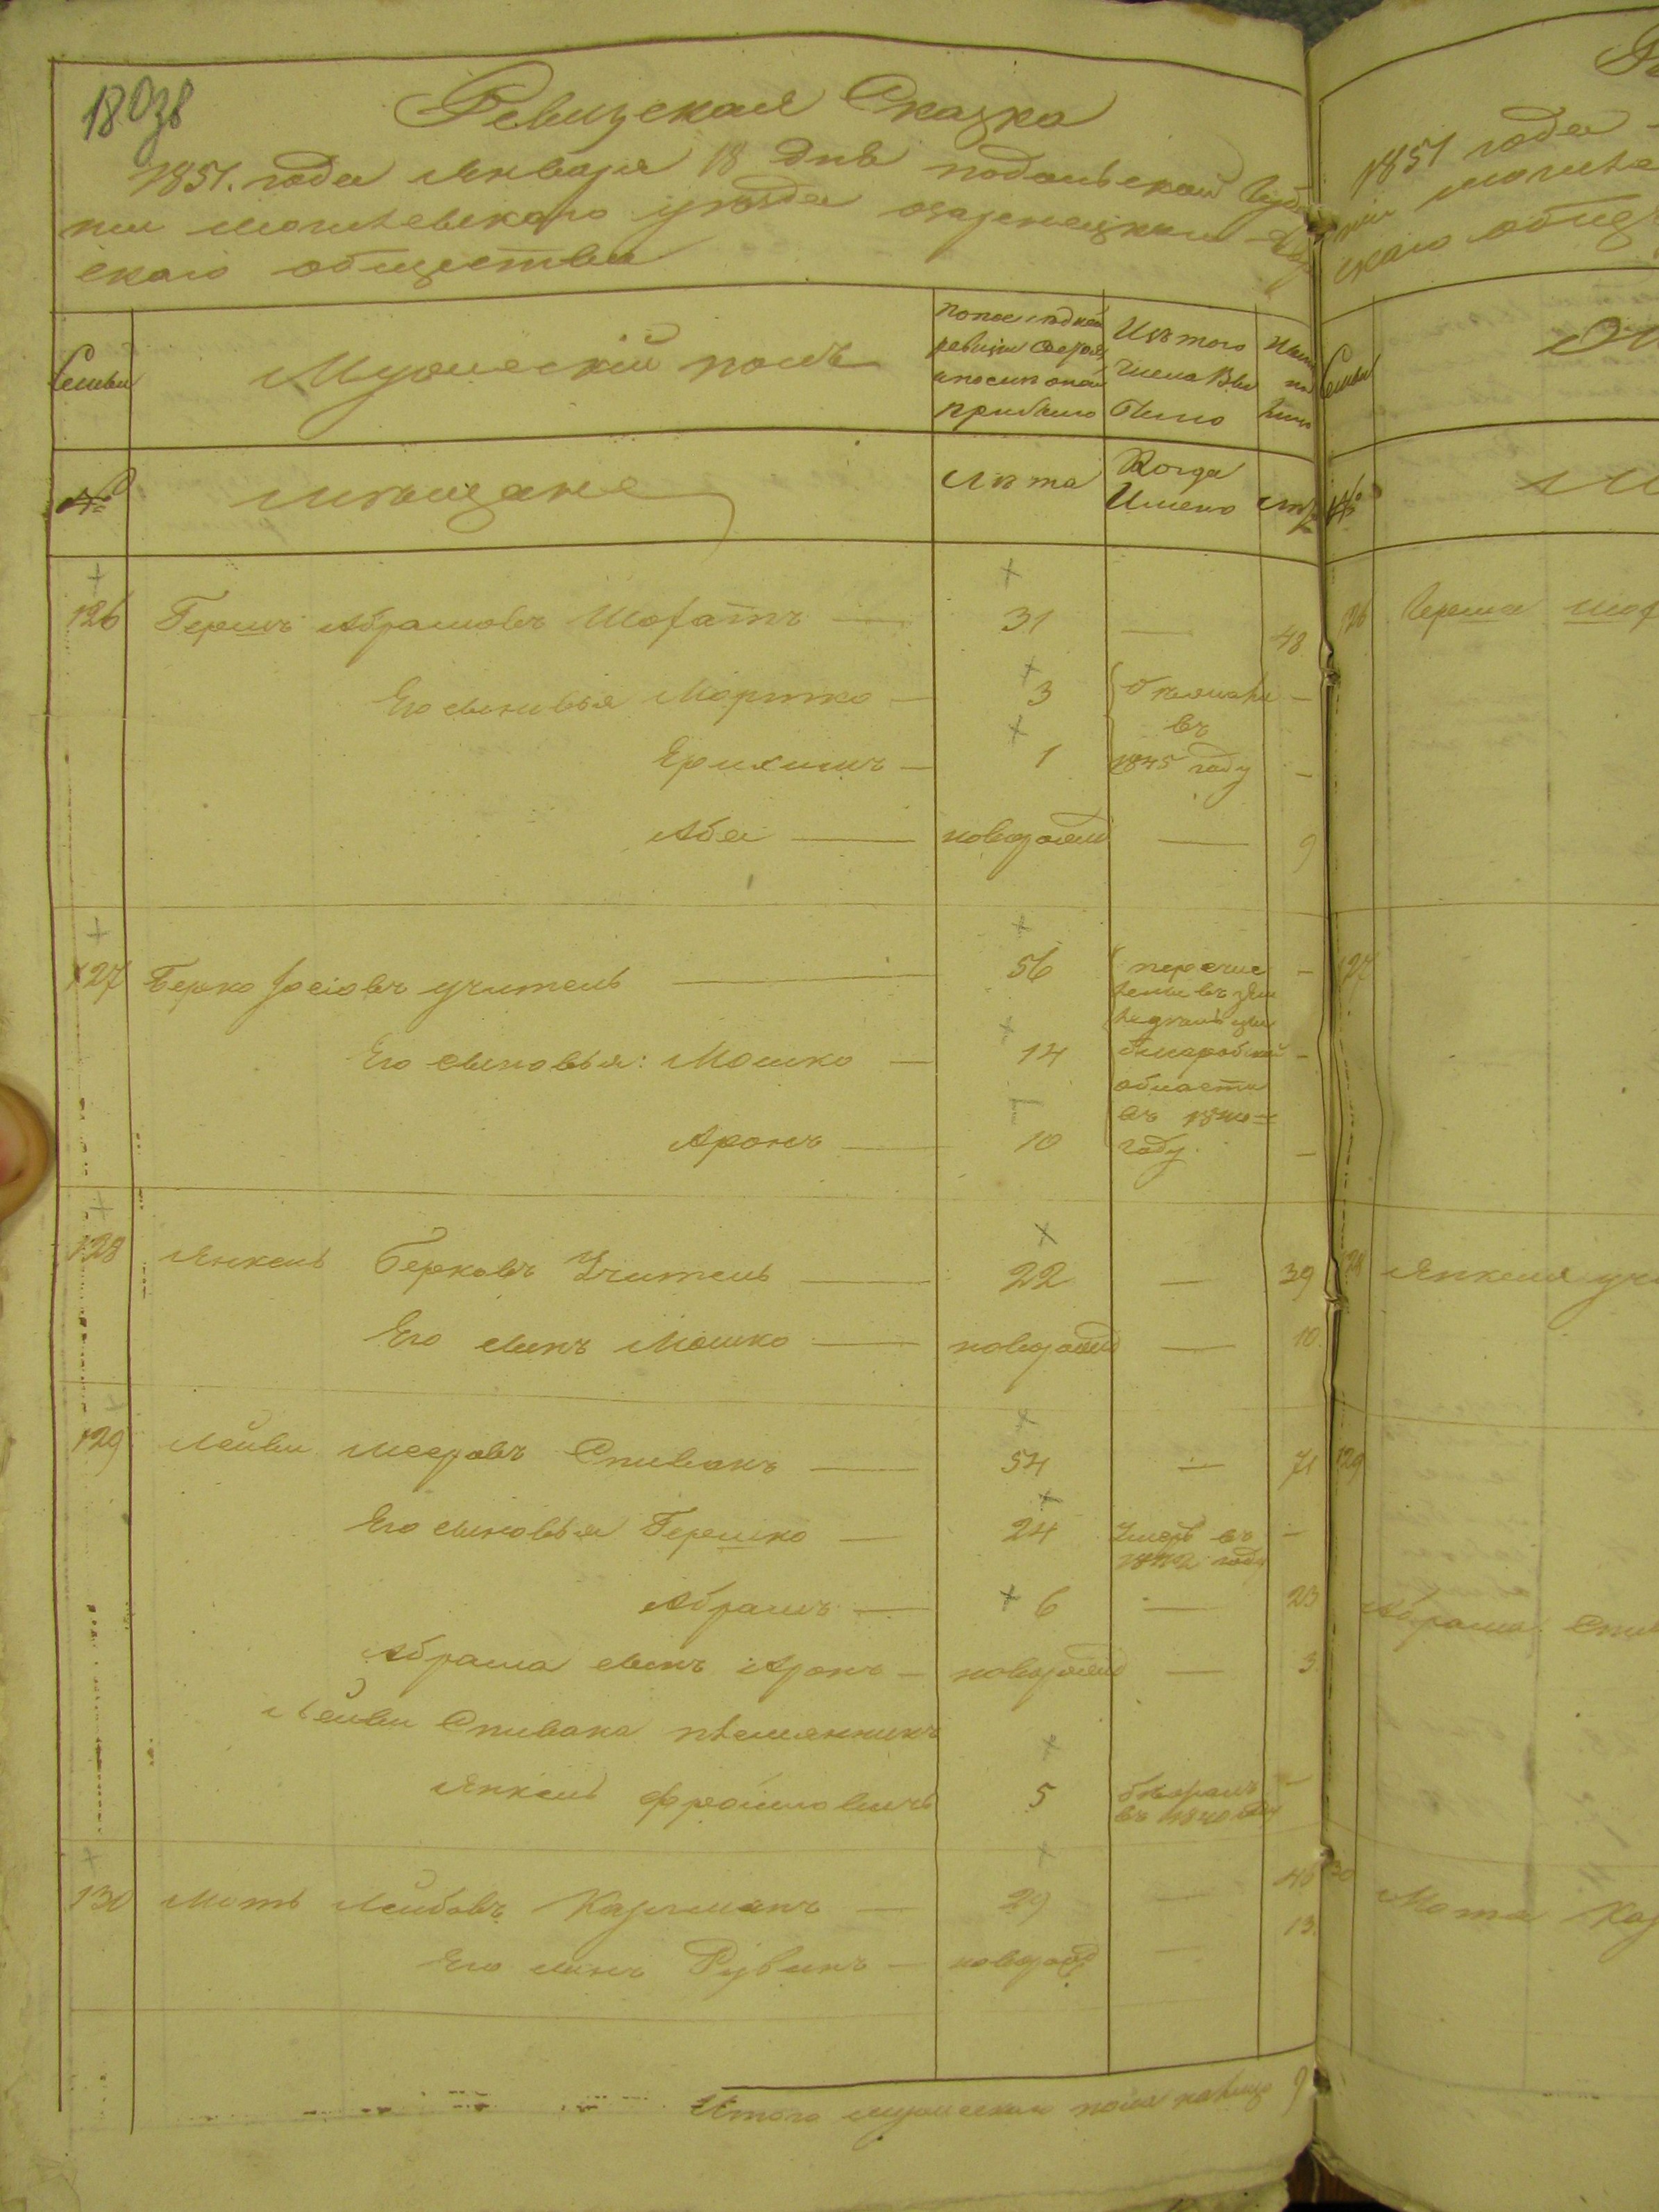 180зв
Ревизская Сказка
1851. года января 18 дня подольской Губер
нии могилевского уѣзда озаренецкаго Евр
скаго общества
Семьи
Мужескій полъ
по последней
ревизіи состоял
и после оной
прибыло
Изъ того
числа Вы
было
Ныне
на
лицо
№
мѣщане
Лѣта
Когда
Именно
Лѣт
126 Гершъ Абрамовъ Шофатъ — 31 — 48
Его сыновья Мортко — 3 Отданы —
въ
Ерухимъ — 1 1845 году —
Аба — новорожд — 9
127 Берко Іосіовъ учитель — 56 перечис —
лены въ зем
ледельцы
Его сыновья: Мошко — 14 —
области
въ 1840
Аронъ — 10 году. —
128 Янкель Берковъ Учитель — 22 — 39
Его сынъ Мошко — новорожд — 10
129 Лейви Мееровъ Спивакъ — 54 — 71
Его сыновья Гершко — 24 Умеръ въ —
1842 году
Абрамъ — 6 — 23
Абрама сынъ Аронъ — новорожд — 3
Лейви Спивака племянникъ
Янкель Фроимовичъ 5 —
въ 1840 году
130 Моть Лейбовъ — 29 — 46
Его сынъ Рувинъ — новорожд — 13
Итого мужескаго пола налицо 9
1851 года
нии могиле
скаго общес
Семьи
№
126 Герша Шоф
127
128 Янкеля учи
129
Абрама Спив
130
Мотя